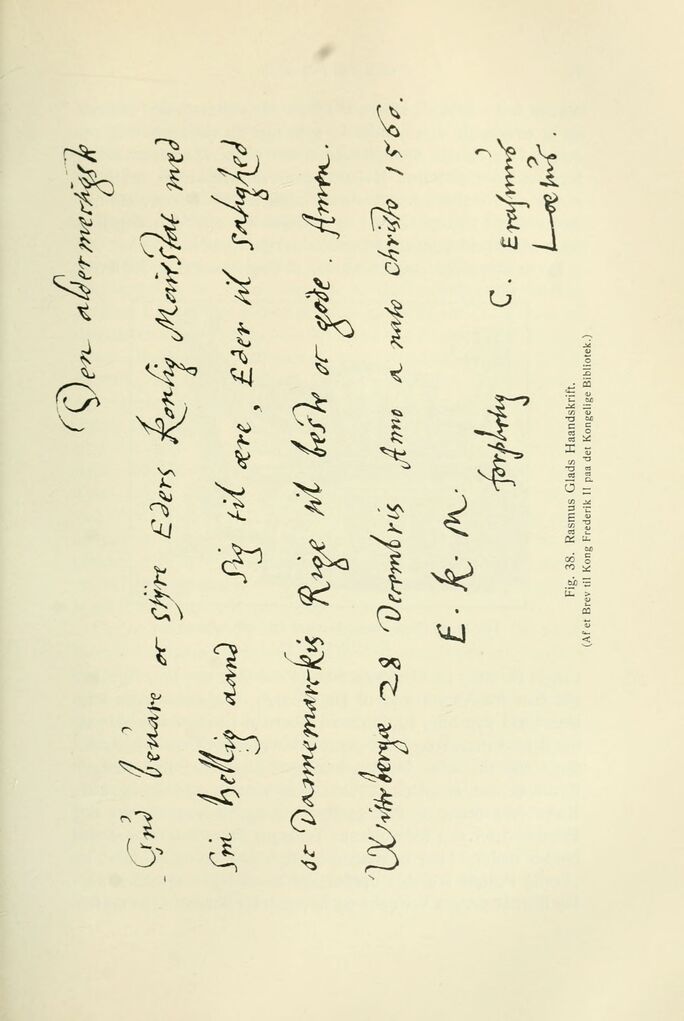 Den aldermectigste
Gud beuare oc styre Eders Konlig Maiestat med
sin hellig aand sig til ære, Eder til salighed
oc Dannemarckis Rige til beste oc gode. Amen.
Witebergæ 28 Decembris Anno a nato Christo 1560.
E. K. M.
forplictig
C. Erasmus
Lætus.
Fig. 38. Rasmus Glads Haandskrift.
(Af et Brev til Kong Frederik II paa det Kongelige Bibliotek.)